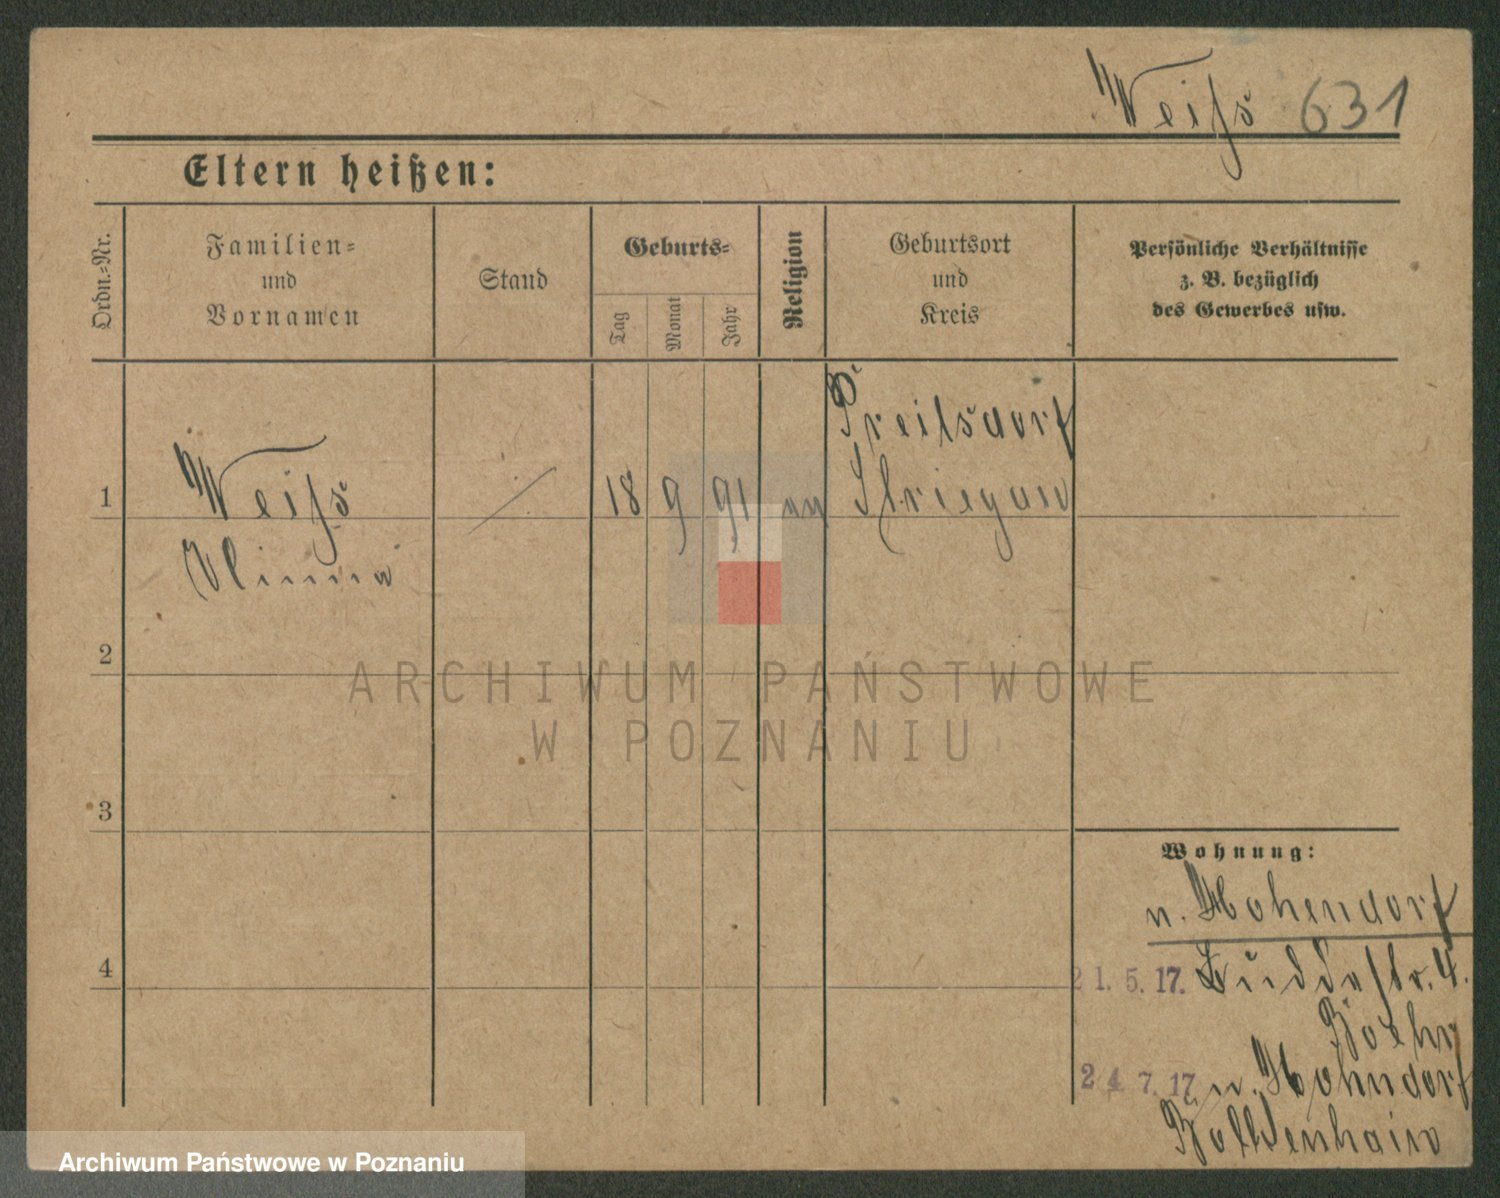 Weiß 631
Eltern heißen:
Ordn.=Nr.
Familien=
und
Vornamen
Stand
Geburts=
Tag
Monat
Jahr
Religion
Geburtsort
und
Kreis
Persönliche Verhältnisse
z. B. bezüglich
des Gewerbes usw.
1
Weiß
18 9 91
Striegau
2
3
4
ARCHIWUM PAŃSTWOWE
W POZNANIU
Wohnung:
n. Hohendorf
21. 5. 17. Buddestr. 4.
Boehr
24. 7. 17 n. Hohndorf
Bolkenhain
Archiwum Państwowe w Poznaniu